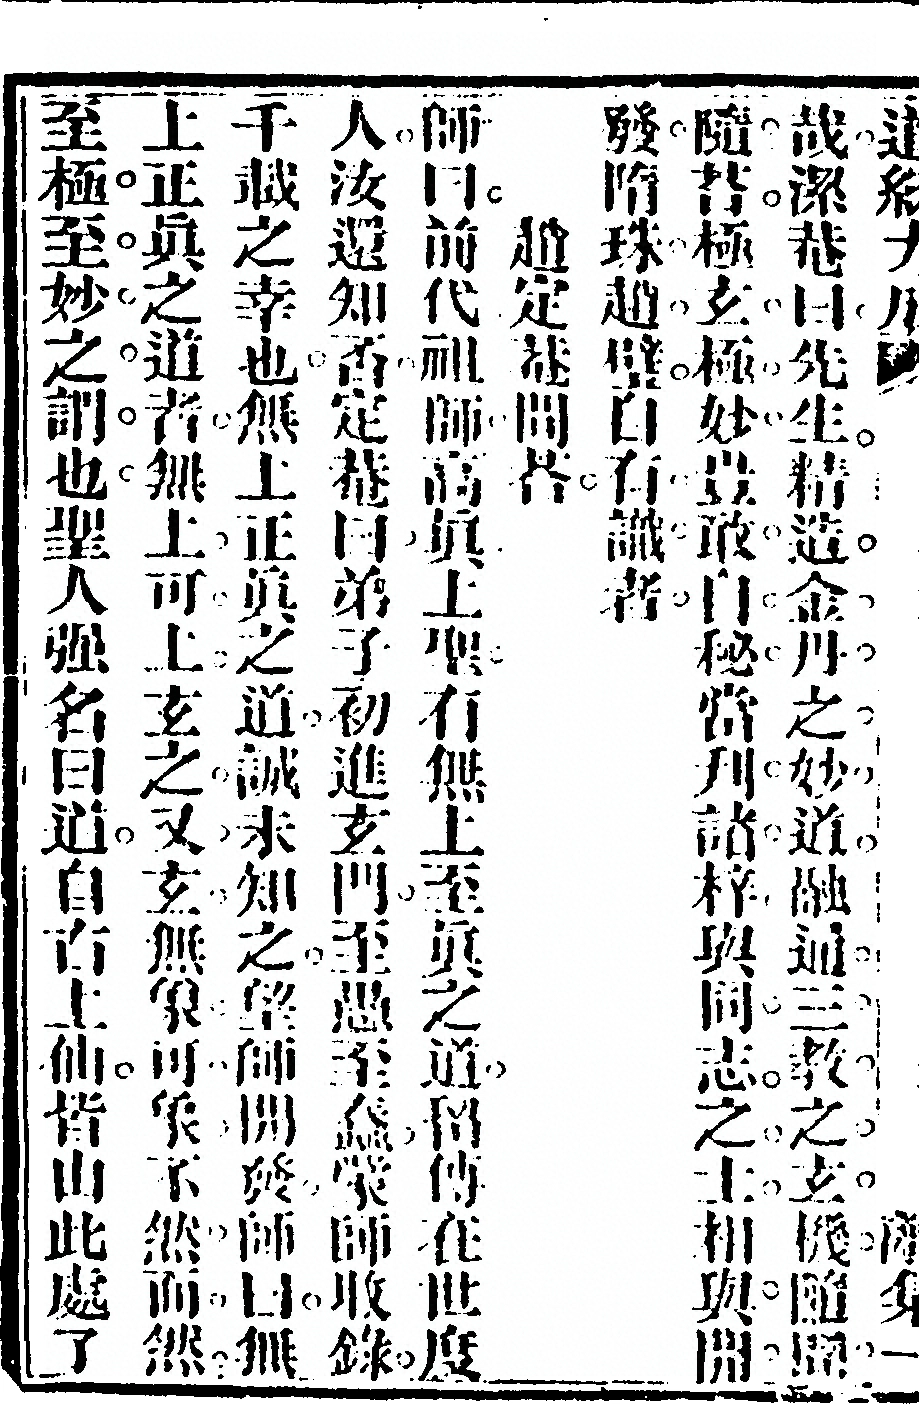 哉潔菴曰先生精造金丹之妙道融通三教之玄機隨問
隨荅極玄極妙豈敢自秘當刋諸梓與同志之士相與開
發隋珠趙璧自有識者
趙定菴問荅
師曰前代祖師高眞上聖有無上至眞之道留傳在世度
人汝還知否定菴曰弟子初進玄門至愚至蠢蒙師收錄
千載之幸也無上正眞之道誠未知之望師開發師曰無
上正眞之道者無上可上玄之又玄無象可象不然而然
至極至妙之謂也聖人强名曰道自古上仙皆由此處了